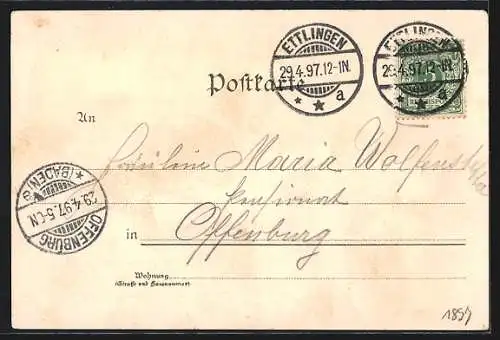 ETTLINGEN
29.4.97.12-1N.
* * a
ETTLINGEN
29.4.97.12-1N.
Postkarte
An
Fräulein Maria
in Offenburg
OFFENBURG
* (BADEN) *
29.4.97.5-6N.
Wohnung
(Straße und Hausnummer)
1897